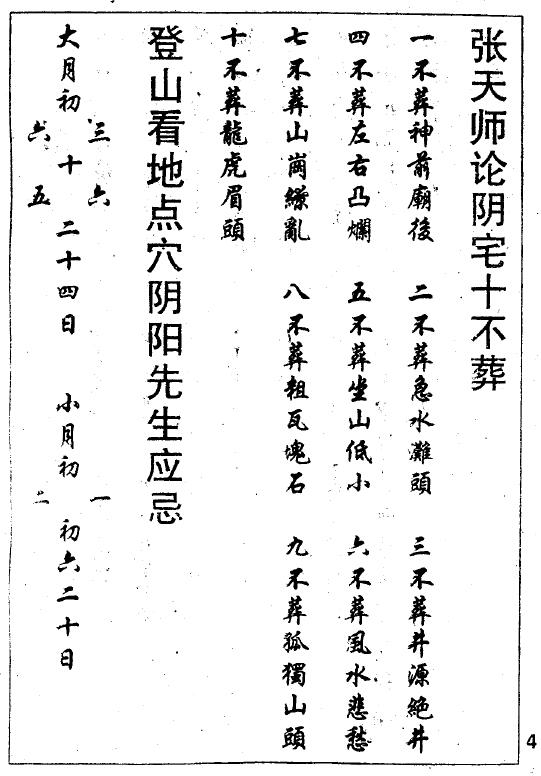 张天师论阴宅十不葬
一不葬神前廟後 二不葬急水灘頭 三不葬井源絕井
四不葬左右凸爛 五不葬坐山低小 六不葬風水悲愁
七不葬山崗繚亂 八不葬粗瓦塊石 九不葬孤獨山頭
十不葬龍虎眉頭
登山看地点穴阴阳先生应忌
大月初三六十六五二十四日 小月初一二初六二十日
4